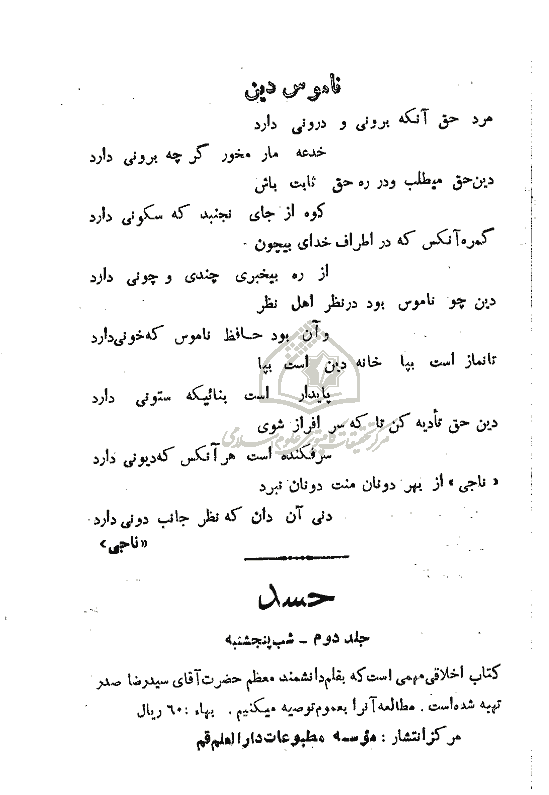 ناموس دین
مرد حق آنکه برونی و درونی دارد
خدعه مار مخور گرچه برونی دارد
دین‌حق میطلب ودر ره حق ثابت باش
کوه از جای نجنبد که سکونی دارد
گمره آنکس که در اطراف خدای بیچون
از ره بیخبری چندی و چونی دارد
دین چو ناموس بود درنظر اهل نظر
وآن بود حافظ ناموس که‌خونی‌دارد
تانماز است بپا خانه دین است بپا
پایدار است بنائیکه ستونی دارد
دین حق تأدیه کن تا که سر افراز شوی
سرفکنده است هرآنکس که‌دیونی دارد
«ناجی» از بهر دونان منت دونان نبرد
دنی آن دان که نظر جانب دونی‌دارد
«ناجی»
مرکز تحقیقات کامپیوتری علوم اسلامی
حسد
جلد دوم – شب‌پنجشنبه
کتاب اخلاقی‌مهمی است‌که بقلم‌دانشمند معظم حضرت‌آقای سیدرضا صدر
تهیه شده‌است. مطالعه‌آنرا بعموم‌توصیه میکنیم. بهاء :۶۰ ریال
مرکزانتشار : مؤسسه مطبوعات‌دارالعلم‌قم